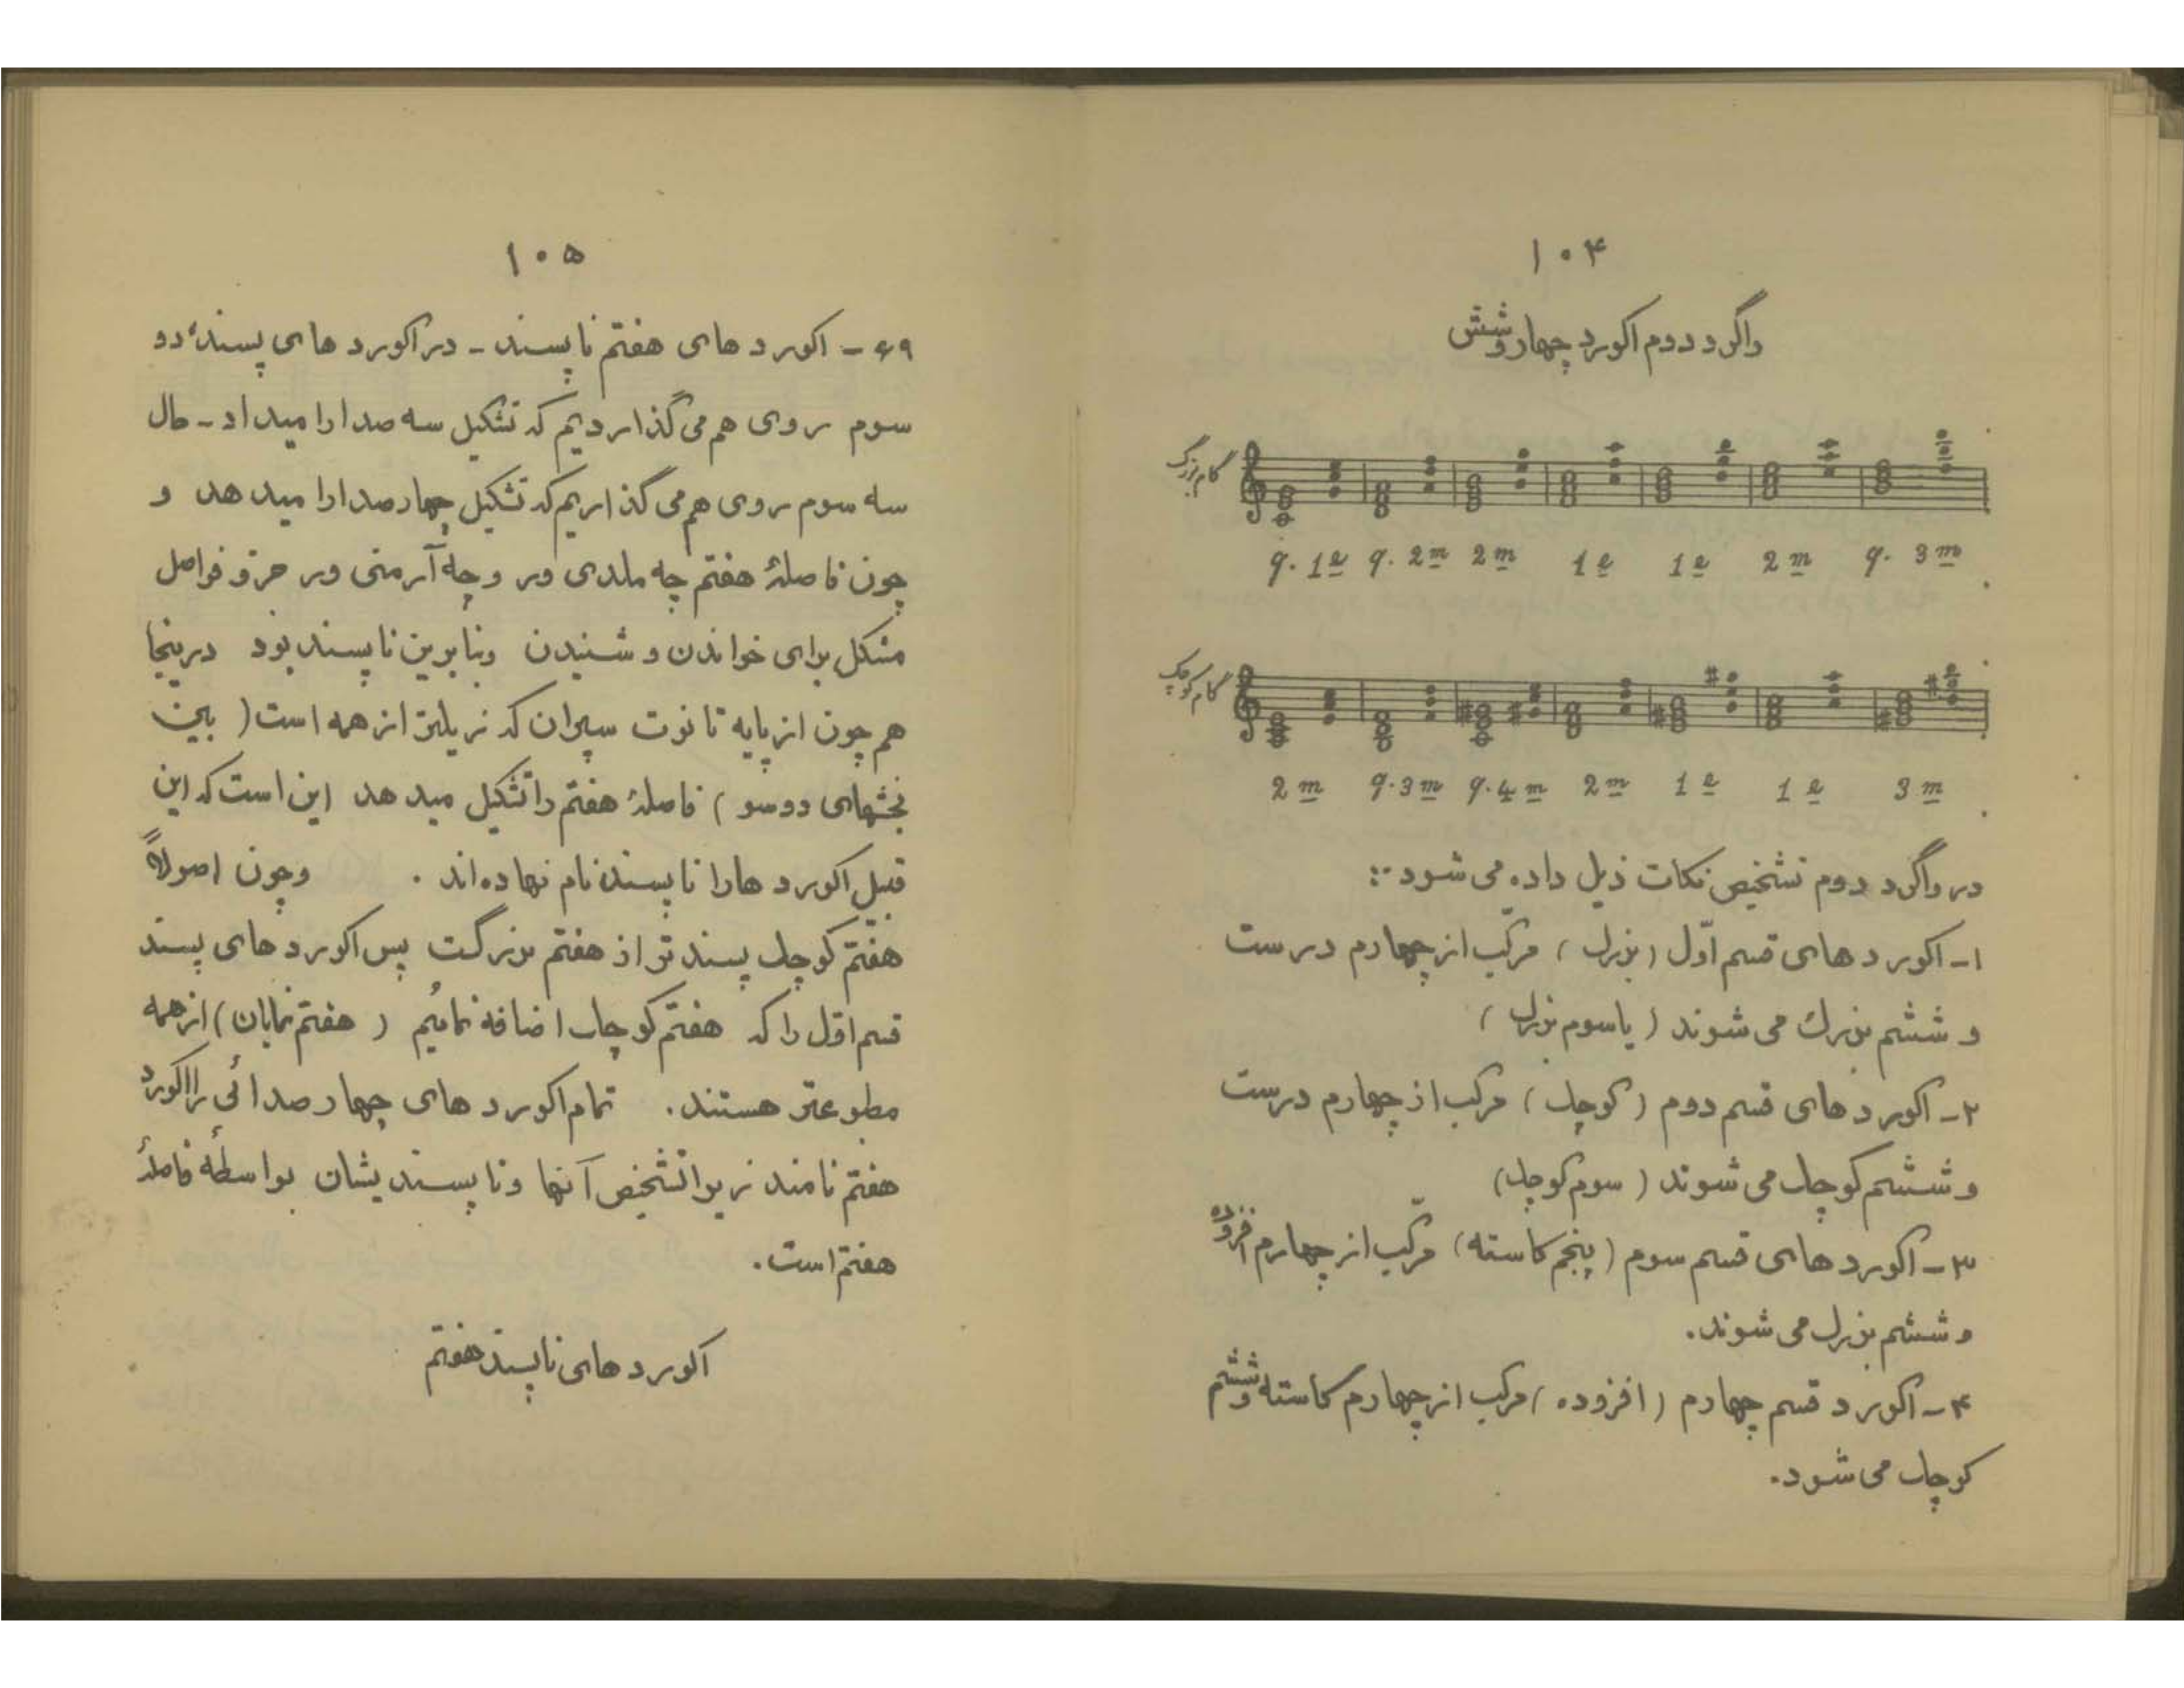 ۱۰۴
واگرد دوم اکورد چهار و شش
گام بزرگ
q. 1e q. 2m 2m 1e 1e 2m q. 3m
گام کوچک
2m q. 3m q. 4m 2m 1e 1e 3m
در واگرد دوم تشخیص نکات ذیل داده می شود :
۱- اکورد های قسم اوّل (بزرگ) مرکّب از چهارم درست
و ششم بزرگ می شوند (یا سوم بزرگ)
۲- اکورد های قسم دوم (کوچک) مرکب از چهارم درست
و ششم کوچک می شوند (سوم کوچک)
۳- اکورد های قسم سوم (پنجم کاسته) مرکّب از چهارم افزوده
و ششم بزرگ می شوند.
۴- اکورد قسم چهارم (افزوده) مرکب از چهارم کاسته و ششم
کوچک می شود.
۱۰۵
۶۹- اکورد های هفتم ناپسند - در اکورد های پسند، دو
سوم روی هم می گذاردیم که تشکیل سه صدا را میداد - حال
سه سوم روی هم می گذاریم که تشکیل چهار صدا را میدهد و
چون فاصلهٔ هفتم چه ملدی ور و چه آرمنی ور جزو فواصل
مشکل برای خواندن و شنیدن وبنابرین ناپسند بود درینجا
هم چون از پایه تا نوت سپران که زیرترین از همه است (بین
بخشهای دوسو) فاصلهٔ هفتم را تشکیل میدهد این است که این
قبیل اکورد هارا ناپسند نام نهاده اند. وچون اصولاً
هفتم کوچک پسند تر از هفتم بزرگست پس اکورد های پسند
قسم اوّل را که هفتم کوچک اضافه نمائیم (هفتم نمایان) از همه
مطبوعتر هستند. تمام اکورد های چهار صدائی را اکورد
هفتم نامند زیرا تشخیص آنها و ناپسندیشان بواسطهٔ فاصلهٔ
هفتم است.
اکورد های ناپسند هفتم